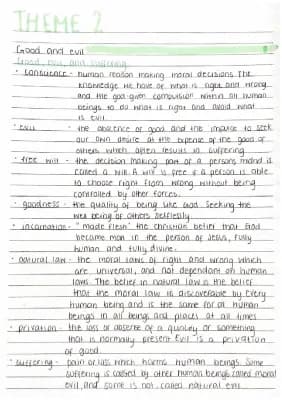 THEME 2
Good and evil
Good, evil, and suffering
• conscience - human reason making moral decisions. The
knowledge we have of what is right and wrong
and the god given compulsion within all human
beings to do what is right and avoid what
is evil
• evil - the abscence of good and the impulse to seek
our own desire at the expense of the good of
others which often results in suffering.
• free will - the decision making part of a persons mind is
called a will. A will is free if a person is able
to choose right from wrong without being
controlled by other forces.
• goodness - the quality of being like God. Seeking the
well being of others selflessly.
• incarnation - "made flesh" the christian belief that God
became man in the person of Jesus, fully
human and fully divine.
• natural law - the moral laws of right and wrong which
are universal, and not dependant on human
laws. The belief in natural law is the belief
that the moral law is discoverable by every
human being and is the same for all human
beings in all beings and places at all times
• privation - the loss or absence of a quality or something
that is normally present. Evil is a privation
of good.
• suffering - pain or loss which harms human beings. Some
suffering is caused by other human beings called moral
evil, and some is not, called natural evil